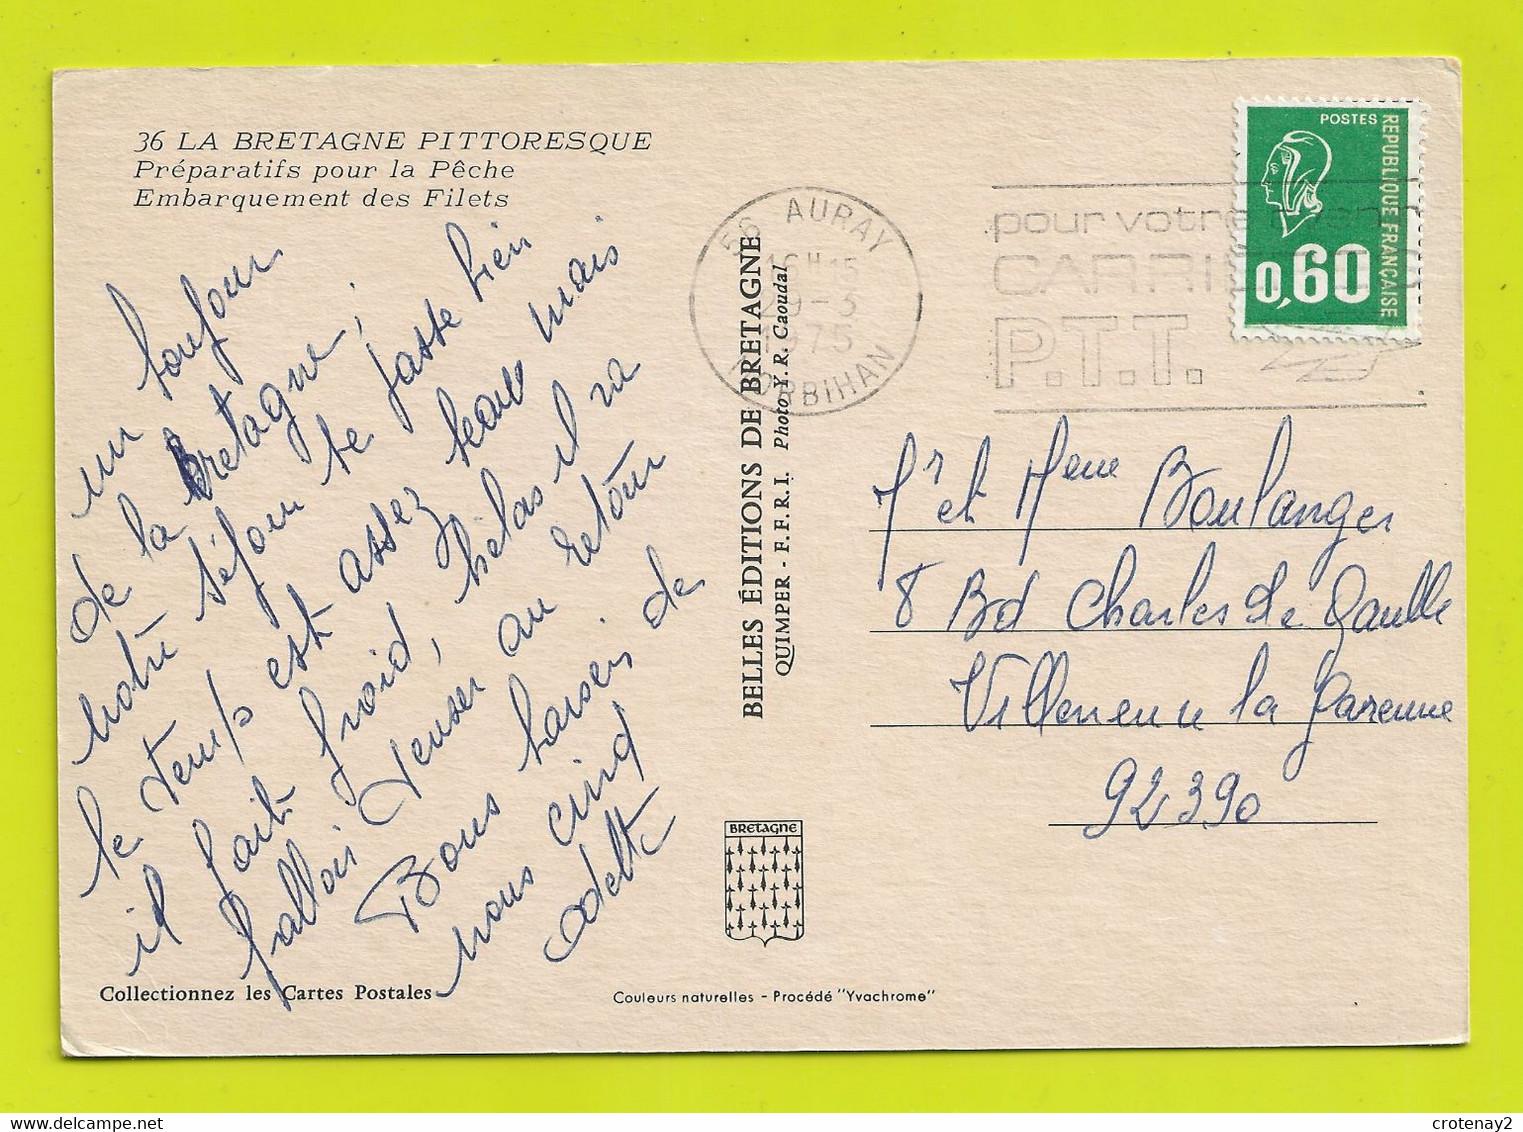 36 LA BRETAGNE PITTORESQUE
Préparatifs pour la Pêche
Embarquement des Filets
un bonjour
de la Bretagne,
notre séjour se passe bien
le temps est assez beau mais
il fait froid, hélas il va
falloir penser au retour
Bons baisers de
nous cinq
Odette
Collectionnez les Cartes Postales
BELLES ÉDITIONS DE BRETAGNE
QUIMPER - F.F.R.I. Photo Y. R. Caoudal
BRETAGNE
Couleurs naturelles - Procédé "Yvachrome"
56 AURAY
16H15
20-3
1975
MORBIHAN
pour votre
P.T.T.
POSTES
REPUBLIQUE FRANÇAISE
0,60
Mr et Mme Boulanger
8 Bd Charles de Gaulle
Villeneuve la Garenne
92390
crotenay2